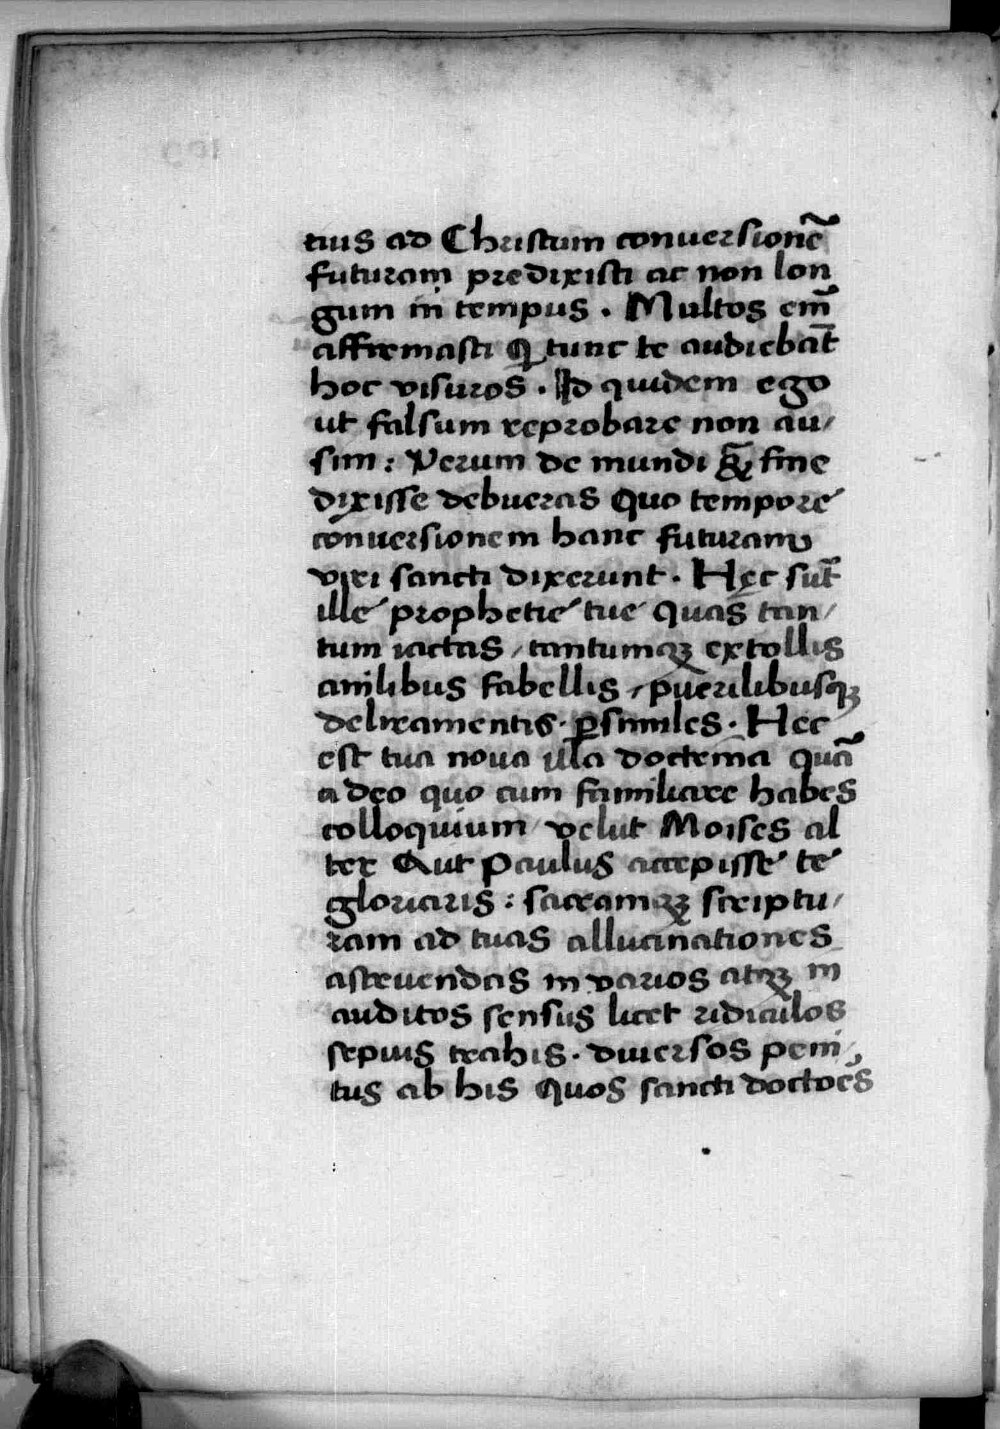 tius ad Christum conuersionẽ
futuram predixisti ac non lon
gum in tempus . Multos em̃
affirmasti ꝙ tunc te audiebãt
hoc visuros . Id quidem ego
ut falsum reprobare non au/
sim : Verum de mundi fine
dixisse debueras Quo tempore
conuersionem hanc futuram
viri sancti dixerunt . Hęc sũt
ille prophetie tue quas tan/
tum iactas / tantumqꝫ extollis
anilibus fabellis / puerilibusqꝫ
deliramentis . ꝑsimiles . Hec
est tua noua illa doctrina quã
a deo quo cum familiare habes
colloquium / velut Moises al
ter Aut Paulus accepisse te
gloriaris : sacramqꝫ scriptu/
ram ad tuas allucinationes
astruendas in varios atqꝫ in
auditos sensus licet ridiculos
sepius trahis . diuersos peni/
tus ab his quos sancti doctoẽs